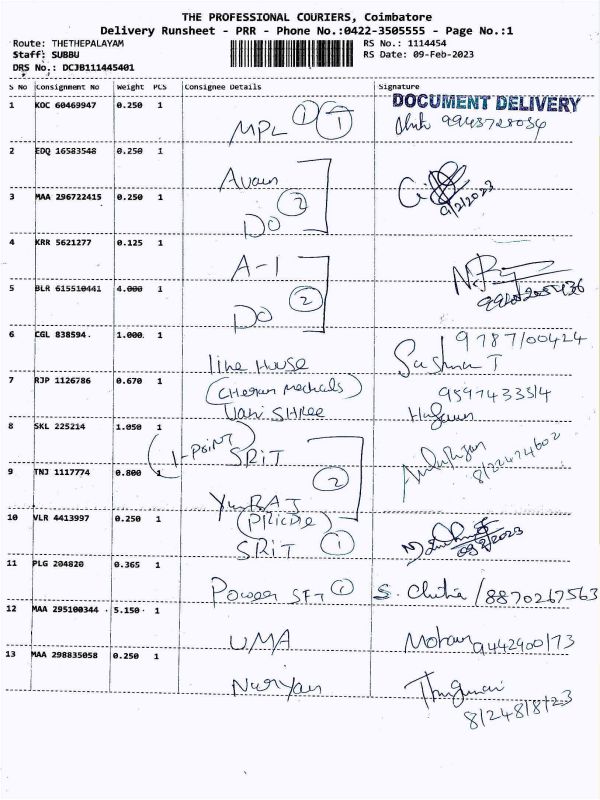 THE PROFESSIONAL COURIERS, Coimbatore
Delivery Runsheet - PRR - Phone No.:0422-3505555 - Page No.:1
Route: THETHEPALAYAM
Staff: SUBBU
DRS No.: DCJB111445401
RS No.: 1114454
RS Date: 09-Feb-2023
S No Consignment No Weight PCS Consignee Details Signature
DOCUMENT DELIVERY
1 KOC 60469947 0.250 1
MPL 1 1
2 EDQ 16583548 0.250 1
9/2/2023
3 MAA 296722415 0.250 1
DO 2
4 KRR 5621277 0.125 1
A-1
5 BLR 615510441 4.000 1
DO 2
6 CGL 838594 1.000 1
line House
9787100424
7 RJP 1126786 0.670 1
(CHERAN Mechals)
Vani SHREE
8 SKL 225214 1.050 1
(1-POINT)
SRiT
9 TNJ 1117774 0.800 1
2
10 VLR 4413997 0.250 1
SRiT 1
11 PLG 204820 0.365 1
Power SFT 1 S. Chitra / 8870267563
12 MAA 295100344 5.150 1
UMA Mohan 9442900173
13 MAA 298835058 0.250 1
Naryan